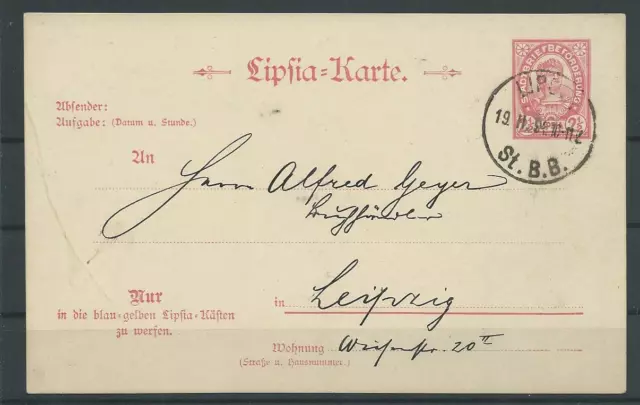 Lipsia=Karte.
STADTBRIEFBEFÖRDERUNG
LIPS
19. II. 94. 10-11 V.
St. B. B.
Absender:
Aufgabe: (Datum u. Stunde.)
An
Herrn Alfred Geyer
Buchhändler
Nur
in die blau-gelben Lipsia-Kästen
zu werfen.
in Leipzig
Wohnung 20 II
(Straße u. Hausnummer.)